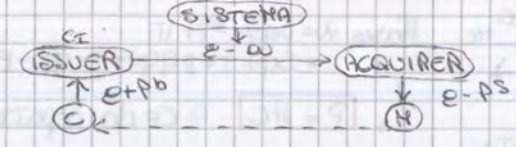 SISTEMA
CI
ISSUER e - ACQUIRER
e+pb e-ps
C M